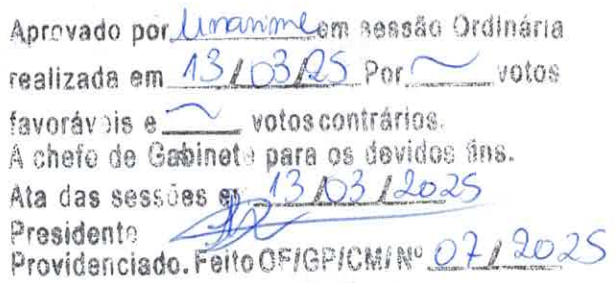 Aprovado por Unanime em sessão Ordinária
realizada em 13/03/25 Por ~ votos
favoráveis e ~ votos contrários.
A chefe de Gabinete para os devidos fins.
Ata das sessões em 13/03/2025
Presidente
Providenciado. Feito OF/GP/CM/Nº 07/2025